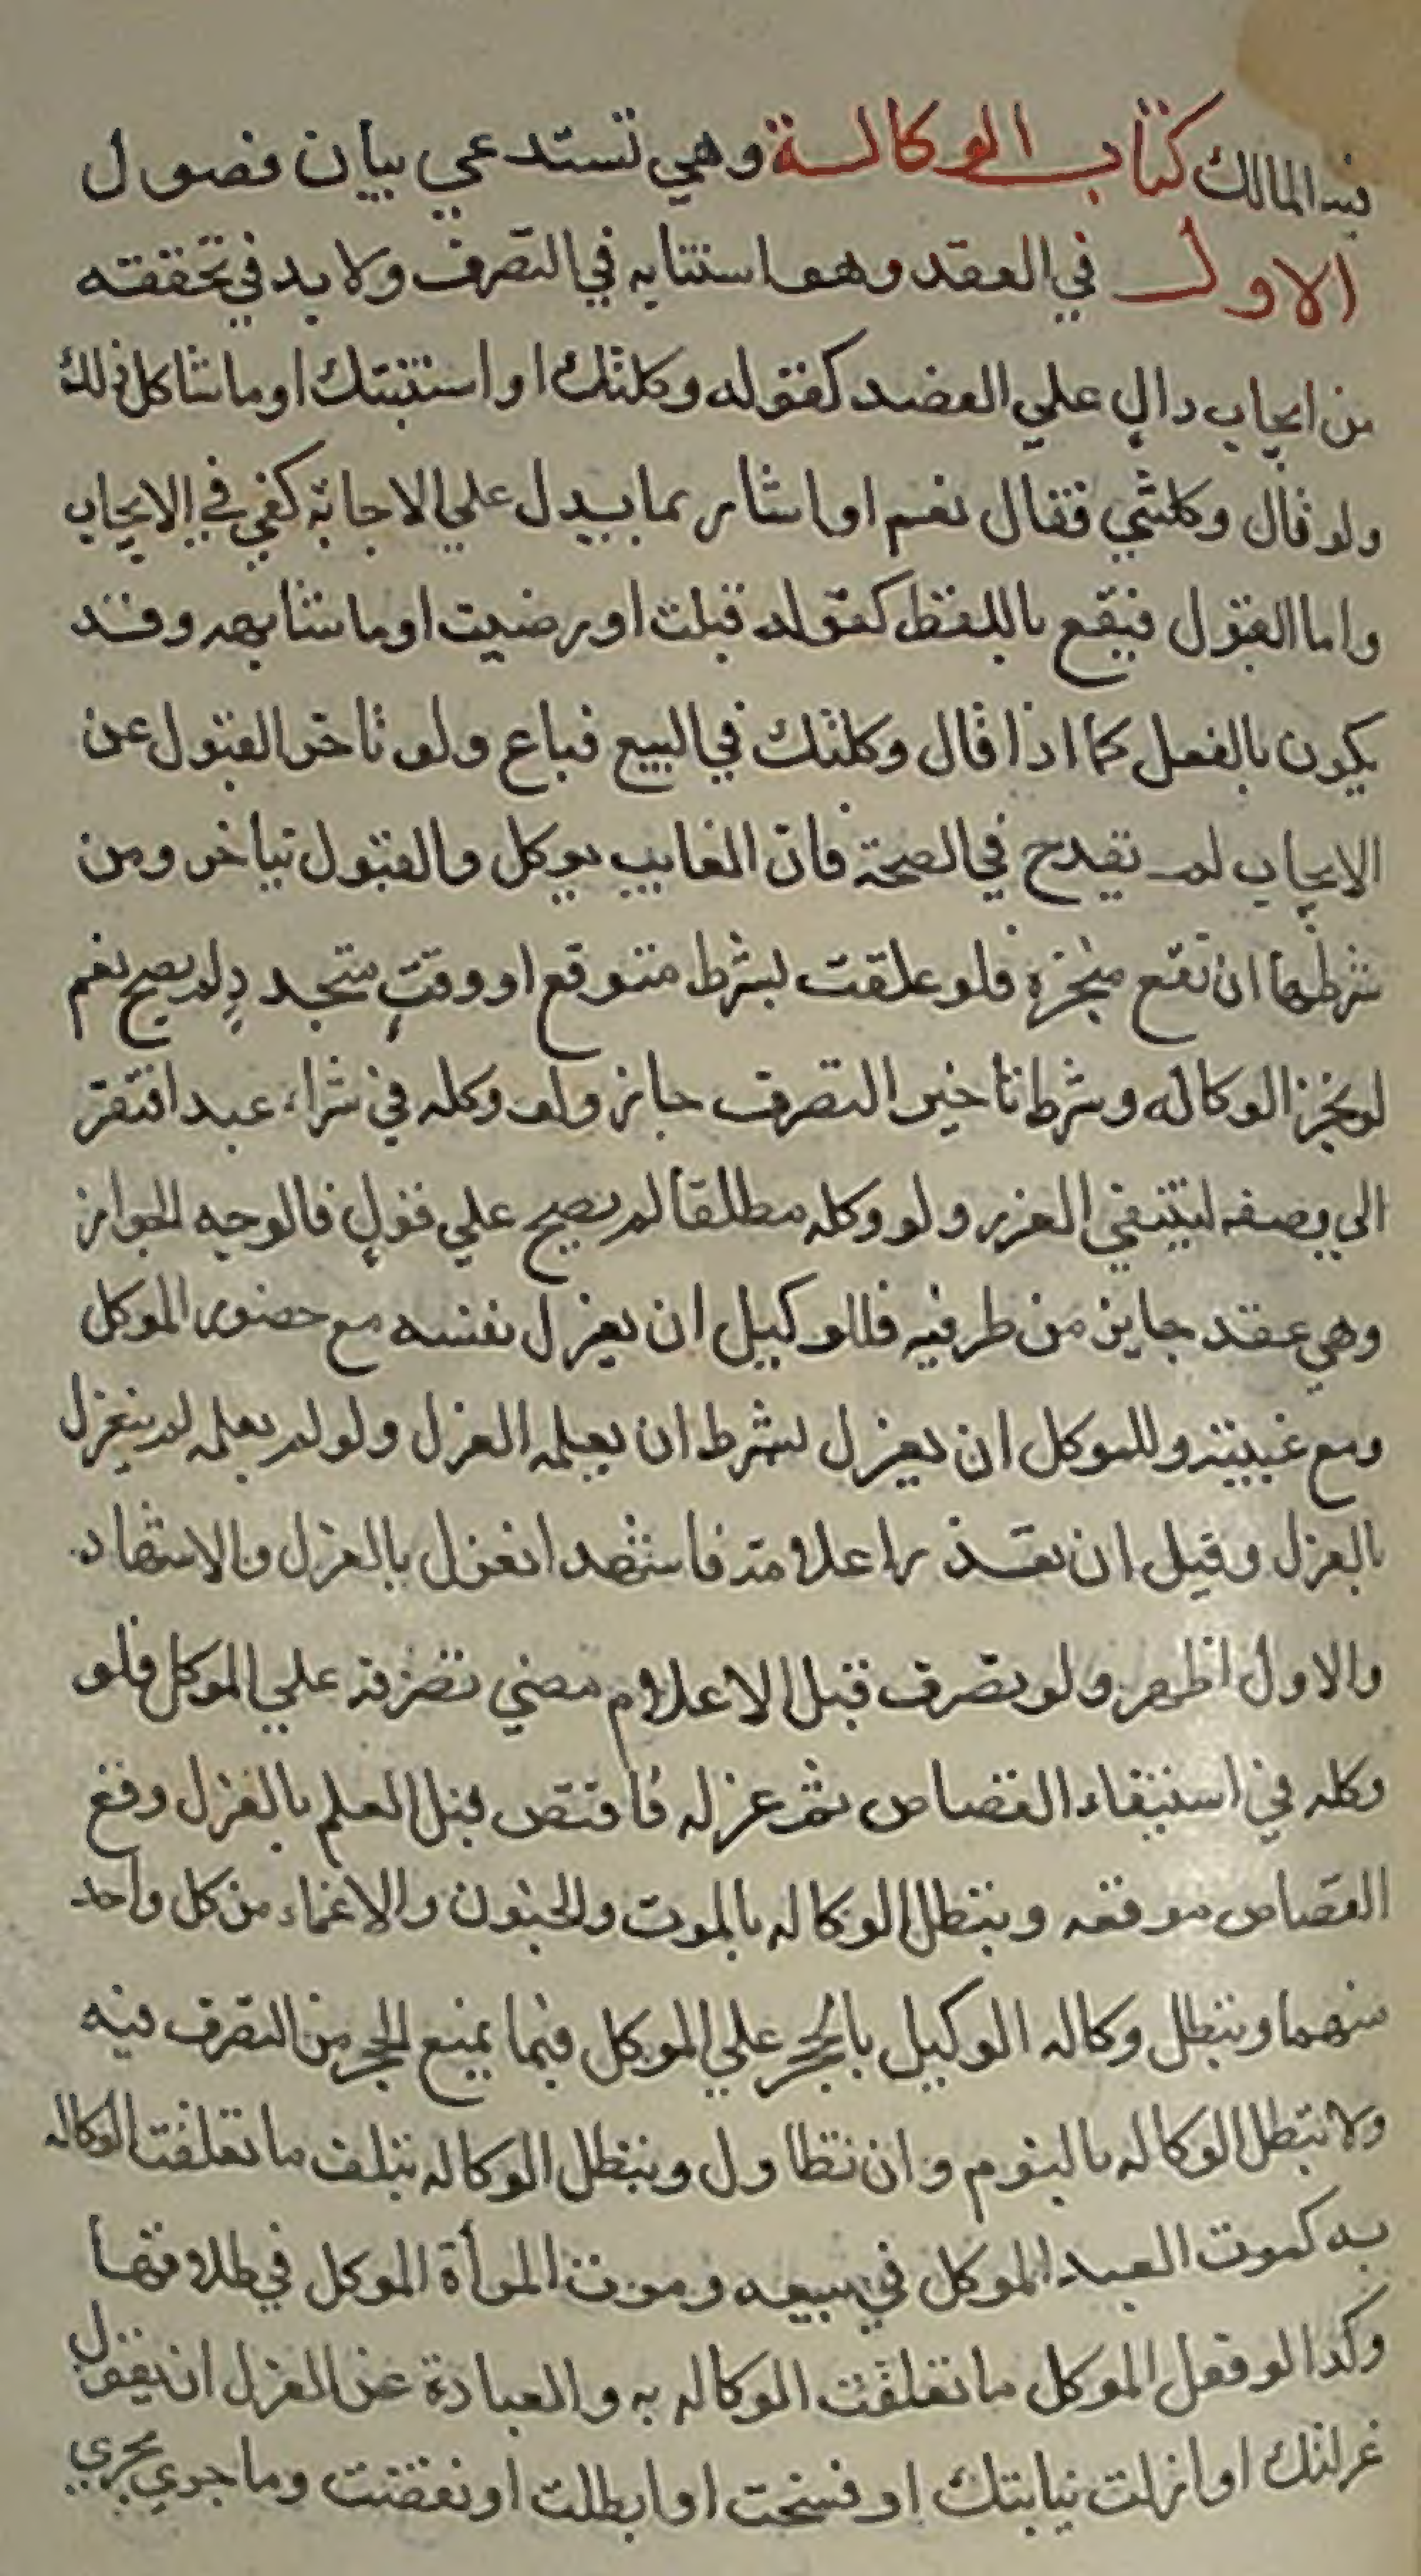 المالك كتاب الوكالة وهي تستدعي بيان فصول
الاول في العقد وهو استنابه في التصرف ولا بد في تحققه
من ايجاب دال علي القصد كقوله وكلتك او استنبتك او ما شاكل ذلك
ولو قال وكلتني فقال نعم او اشار بما يدل علي الاجابة كفي في الايجاب
واما القبول فيقع باللفظ كقوله قبلت او رضيت او ما شابهه وقد
يكون بالفعل كما اذا قال وكلتك في البيع فباع ولو تاخر القبول عن
الايجاب لم يقدح في الصحة فان الغايب يوكل والقبول يتاخر ومن
شرطها ان تقع منجزة فلو علقت بشرط متوقع او وقت متجدد لم يصح نعم
لو نجز الوكاله وشرط تاخير التصرف جاز ولو وكله في شراء عبد افتقر
الي وصفه لينتفي الغرر ولو وكله مطلقا لم يصح علي قول فالوجه الجواز
وهي عقد جايز من طرفيه فللوكيل ان يعزل نفسه مع حضور الموكل
ومع غيبته وللموكل ان يعزل بشرط ان يعلمه العزل ولو لم يعلمه لم ينعزل
بالعزل وقيل ان تعذر اعلامه فاشهد انعزل بالعزل والاشهاد
والاول اظهر ولو تصرف قبل الاعلام مضي تصرفه علي الموكل فلو
وكله في استيفاء القصاص ثم عزله فاقتص قبل العلم بالعزل وقع
القصاص موقعه وتبطل الوكاله بالموت والجنون والاغماء من كل واحد
منهما وتبطل وكاله الوكيل بالحجر علي الموكل فيما يمنع الحجر من التصرف فيه
ولا تبطل الوكاله بالنوم وان تطاول وتبطل الوكاله بتلف ما تعلقت الوكاله
به كموت العبد الموكل في بيعه وموت المرأة الموكل في طلاقها
وكذا لو فعل الموكل ما تعلقت الوكاله به والعبادة عن العزل ان يقول
عزلتك او ازلت نيابتك او فسخت او ابطلت او نقضت وما جري مجري